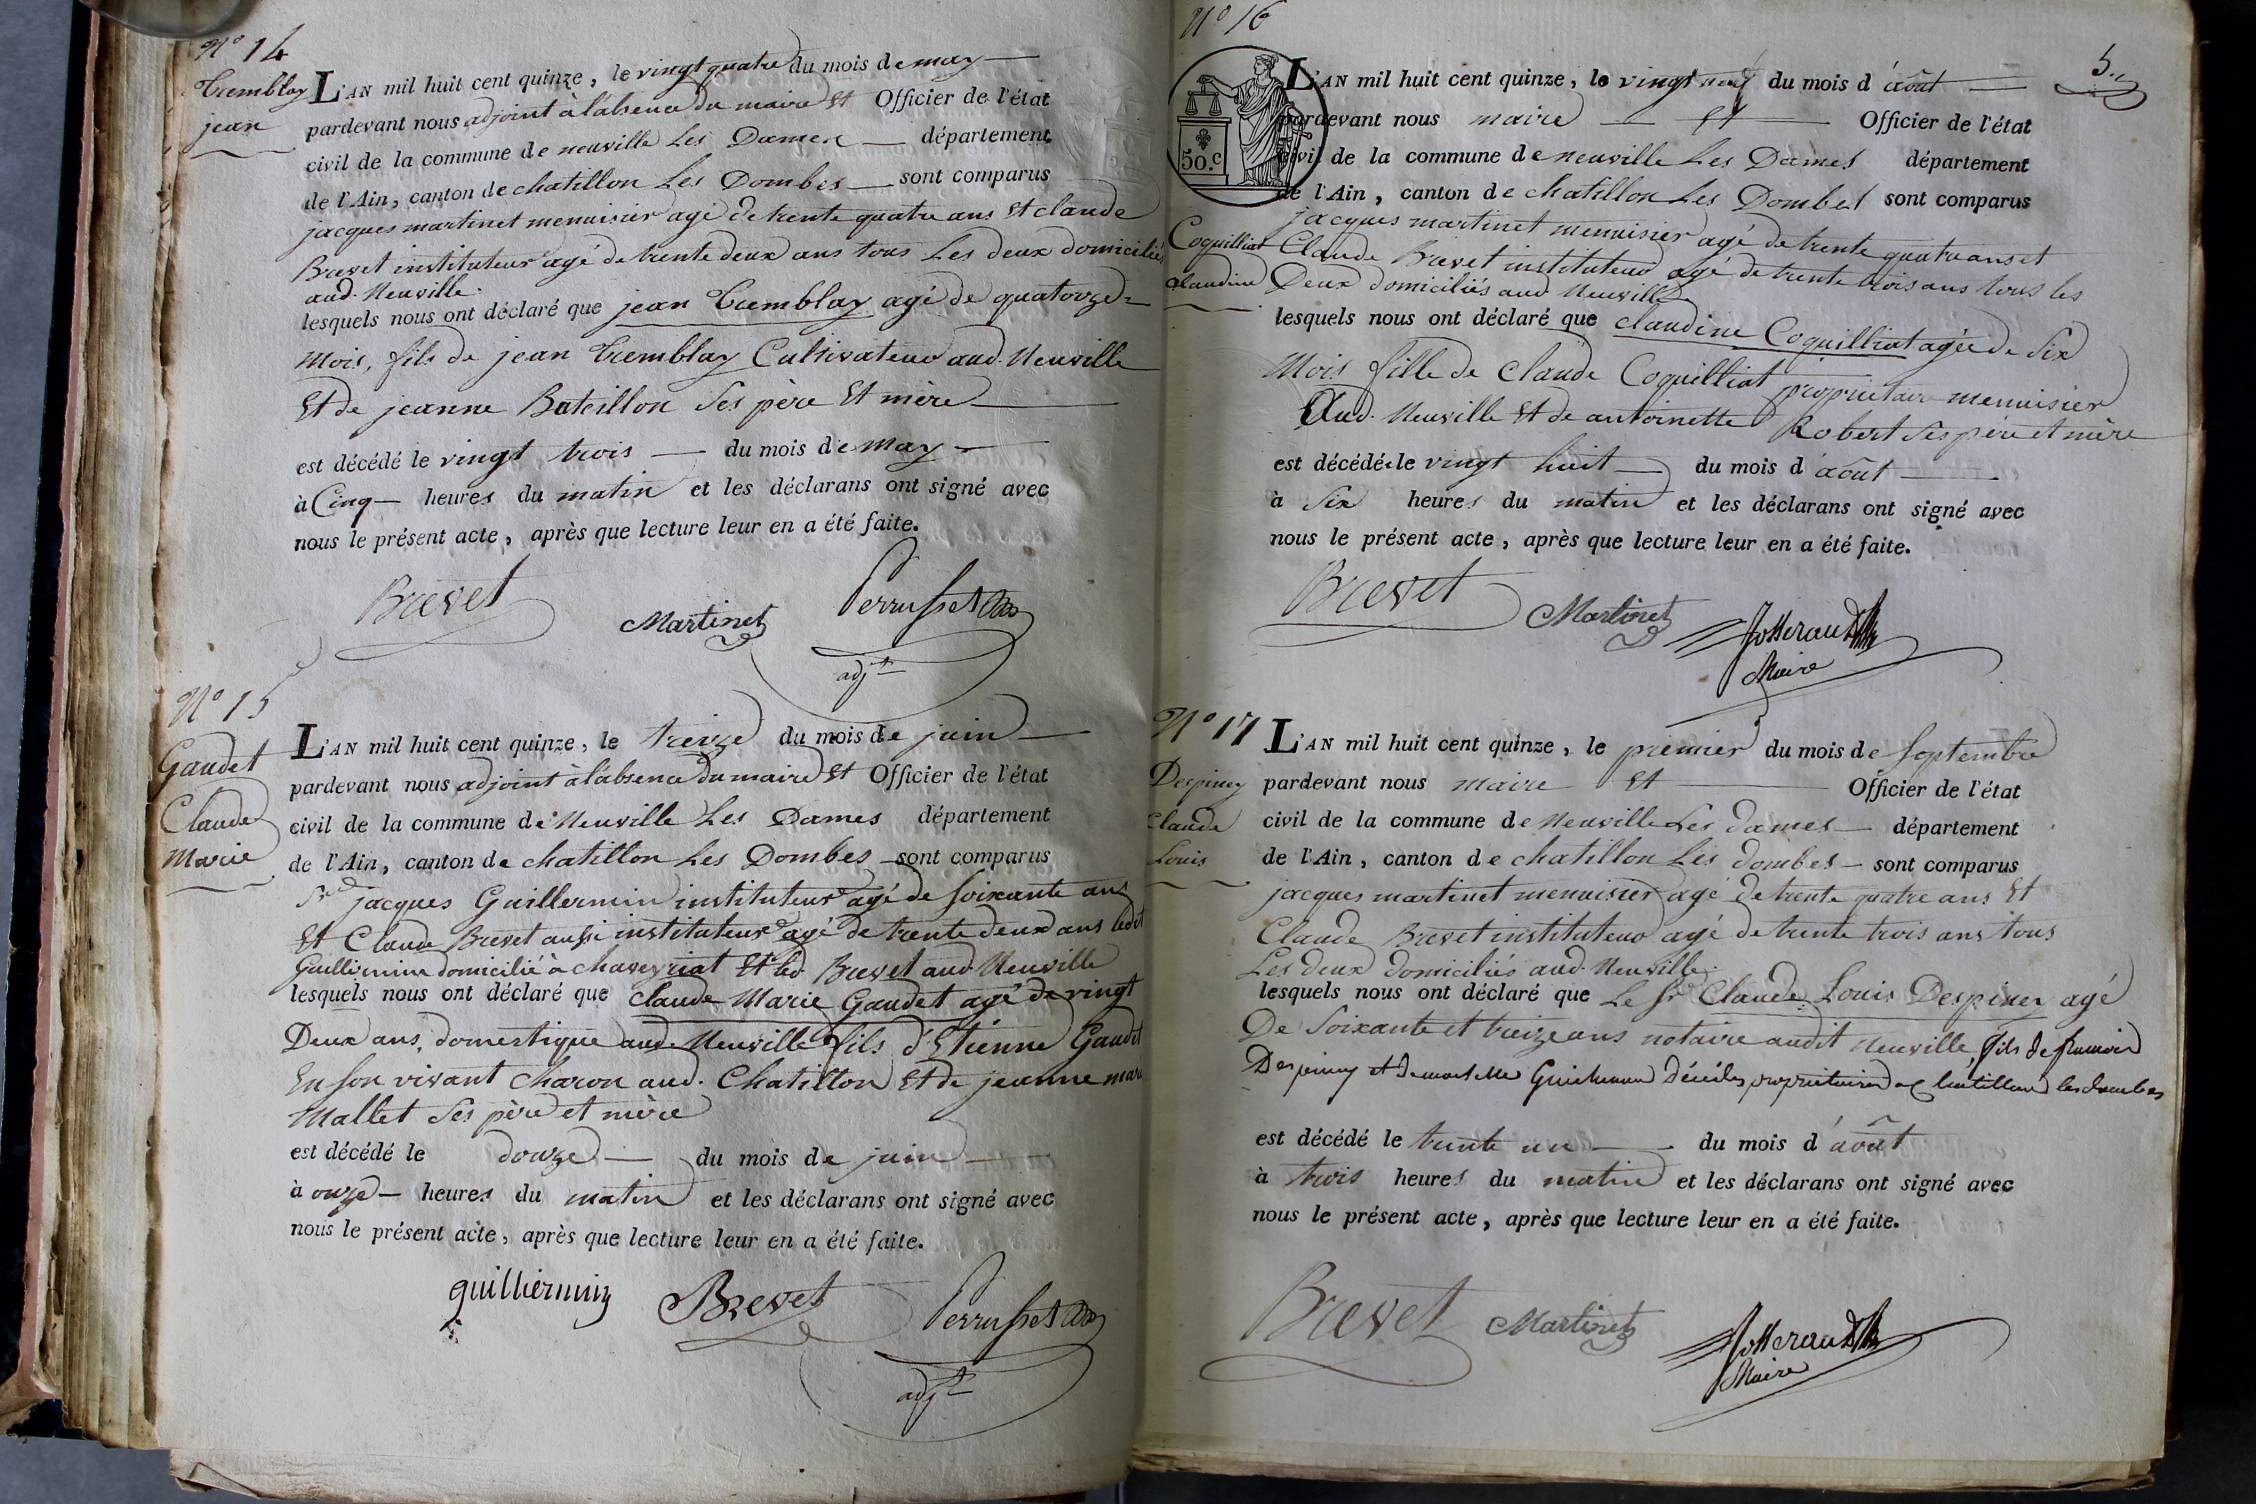 N° 14
Tremblay
jean
L'AN mil huit cent quinze, le vingt quatre du mois de may
pardevant nous adjoint à l'absence du maire Et Officier de l'état
civil de la commune de neuville Les Dames département
de l'Ain, canton de chatillon Les Dombes sont comparus
jacques martinet menuisier agé de trente quatre ans Et claude
Brevet instituteur agé de trente deux ans tous Les deux domiciliés
aud. Neuville.
lesquels nous ont déclaré que jean Tremblay agé de quatorze
Mois, fils de jean Tremblay Cultivateur aud. Neuville
Et de jeanne Bateillon Ses père Et mère
est décédé le vingt trois du mois de may
à Cinq heures du matin et les déclarans ont signé avec
nous le présent acte, après que lecture leur en a été faite.
Brevet
Martinet
Perrusset
adjt
N° 15
Gaudet
Claude
Marie
L'AN mil huit cent quinze, le treize du mois de juin
pardevant nous adjoint à l'absence du maire Et Officier de l'état
civil de la commune de Neuville Les Dames département
de l'Ain, canton de chatillon Les Dombes sont comparus
Sr jacques Guillermin instituteur agé de soixante ans
Et Claude Brevet aussi instituteur agé de trente deux ans ledit
Guillermin domicilié à chaveyriat Et led. Brevet aud. Neuville
lesquels nous ont déclaré que claude Marie Gaudet agé de vingt
Deux ans, domestique aud. Neuville fils d'Etienne Gaudet
En son vivant charon aud. Chatillon Et de jeanne marie
Mallet Ses père et mère
est décédé le douze du mois de juin
à onze heures du matin et les déclarans ont signé avec
nous le présent acte, après que lecture leur en a été faite.
guilliermin
Brevet
Perrusset
adjt
N° 16
5.
50.c
Coquilliat
claudine
L'AN mil huit cent quinze, le vingt neuf du mois d'août
pardevant nous maire Et Officier de l'état
civil de la commune de neuville Les Dames département
de l'Ain, canton de chatillon Les Dombes sont comparus
jacques martinet menuisier agé de trente quatre ans et
Claude Brevet instituteur agé de trente trois ans tous les
Deux domiciliés aud. Neuville
lesquels nous ont déclaré que claudine Coquilliat agée de Six
Mois fille de Claude Coquilliat propriétaire menuisier
Aud. Neuville Et de antoinette Robert Ses père et mère
est décédée le vingt huit du mois d'août
à Six heures du matin et les déclarans ont signé avec
nous le présent acte, après que lecture leur en a été faite.
Brevet
Martinet
Maire
N° 17
Despiney
Claude
Louis
L'AN mil huit cent quinze, le premier du mois de Septembre
pardevant nous maire Et Officier de l'état
civil de la commune de Neuville Les dames département
de l'Ain, canton de chatillon Les dombes sont comparus
jacques martinet menuisier agé de trente quatre ans Et
Claude Brevet instituteur agé de trente trois ans tous
Les deux domiciliés aud. Neuville.
lesquels nous ont déclaré que Le Sr Claude Louis Despiney agé
De Soixante et treize ans notaire audit Neuville, fils de
Despiney et demoiselle décédés propriétaires a Chatillon les dombes
est décédé le trente un du mois d'août
à trois heures du matin et les déclarans ont signé avec
nous le présent acte, après que lecture leur en a été faite.
Brevet
Martinet
Maire